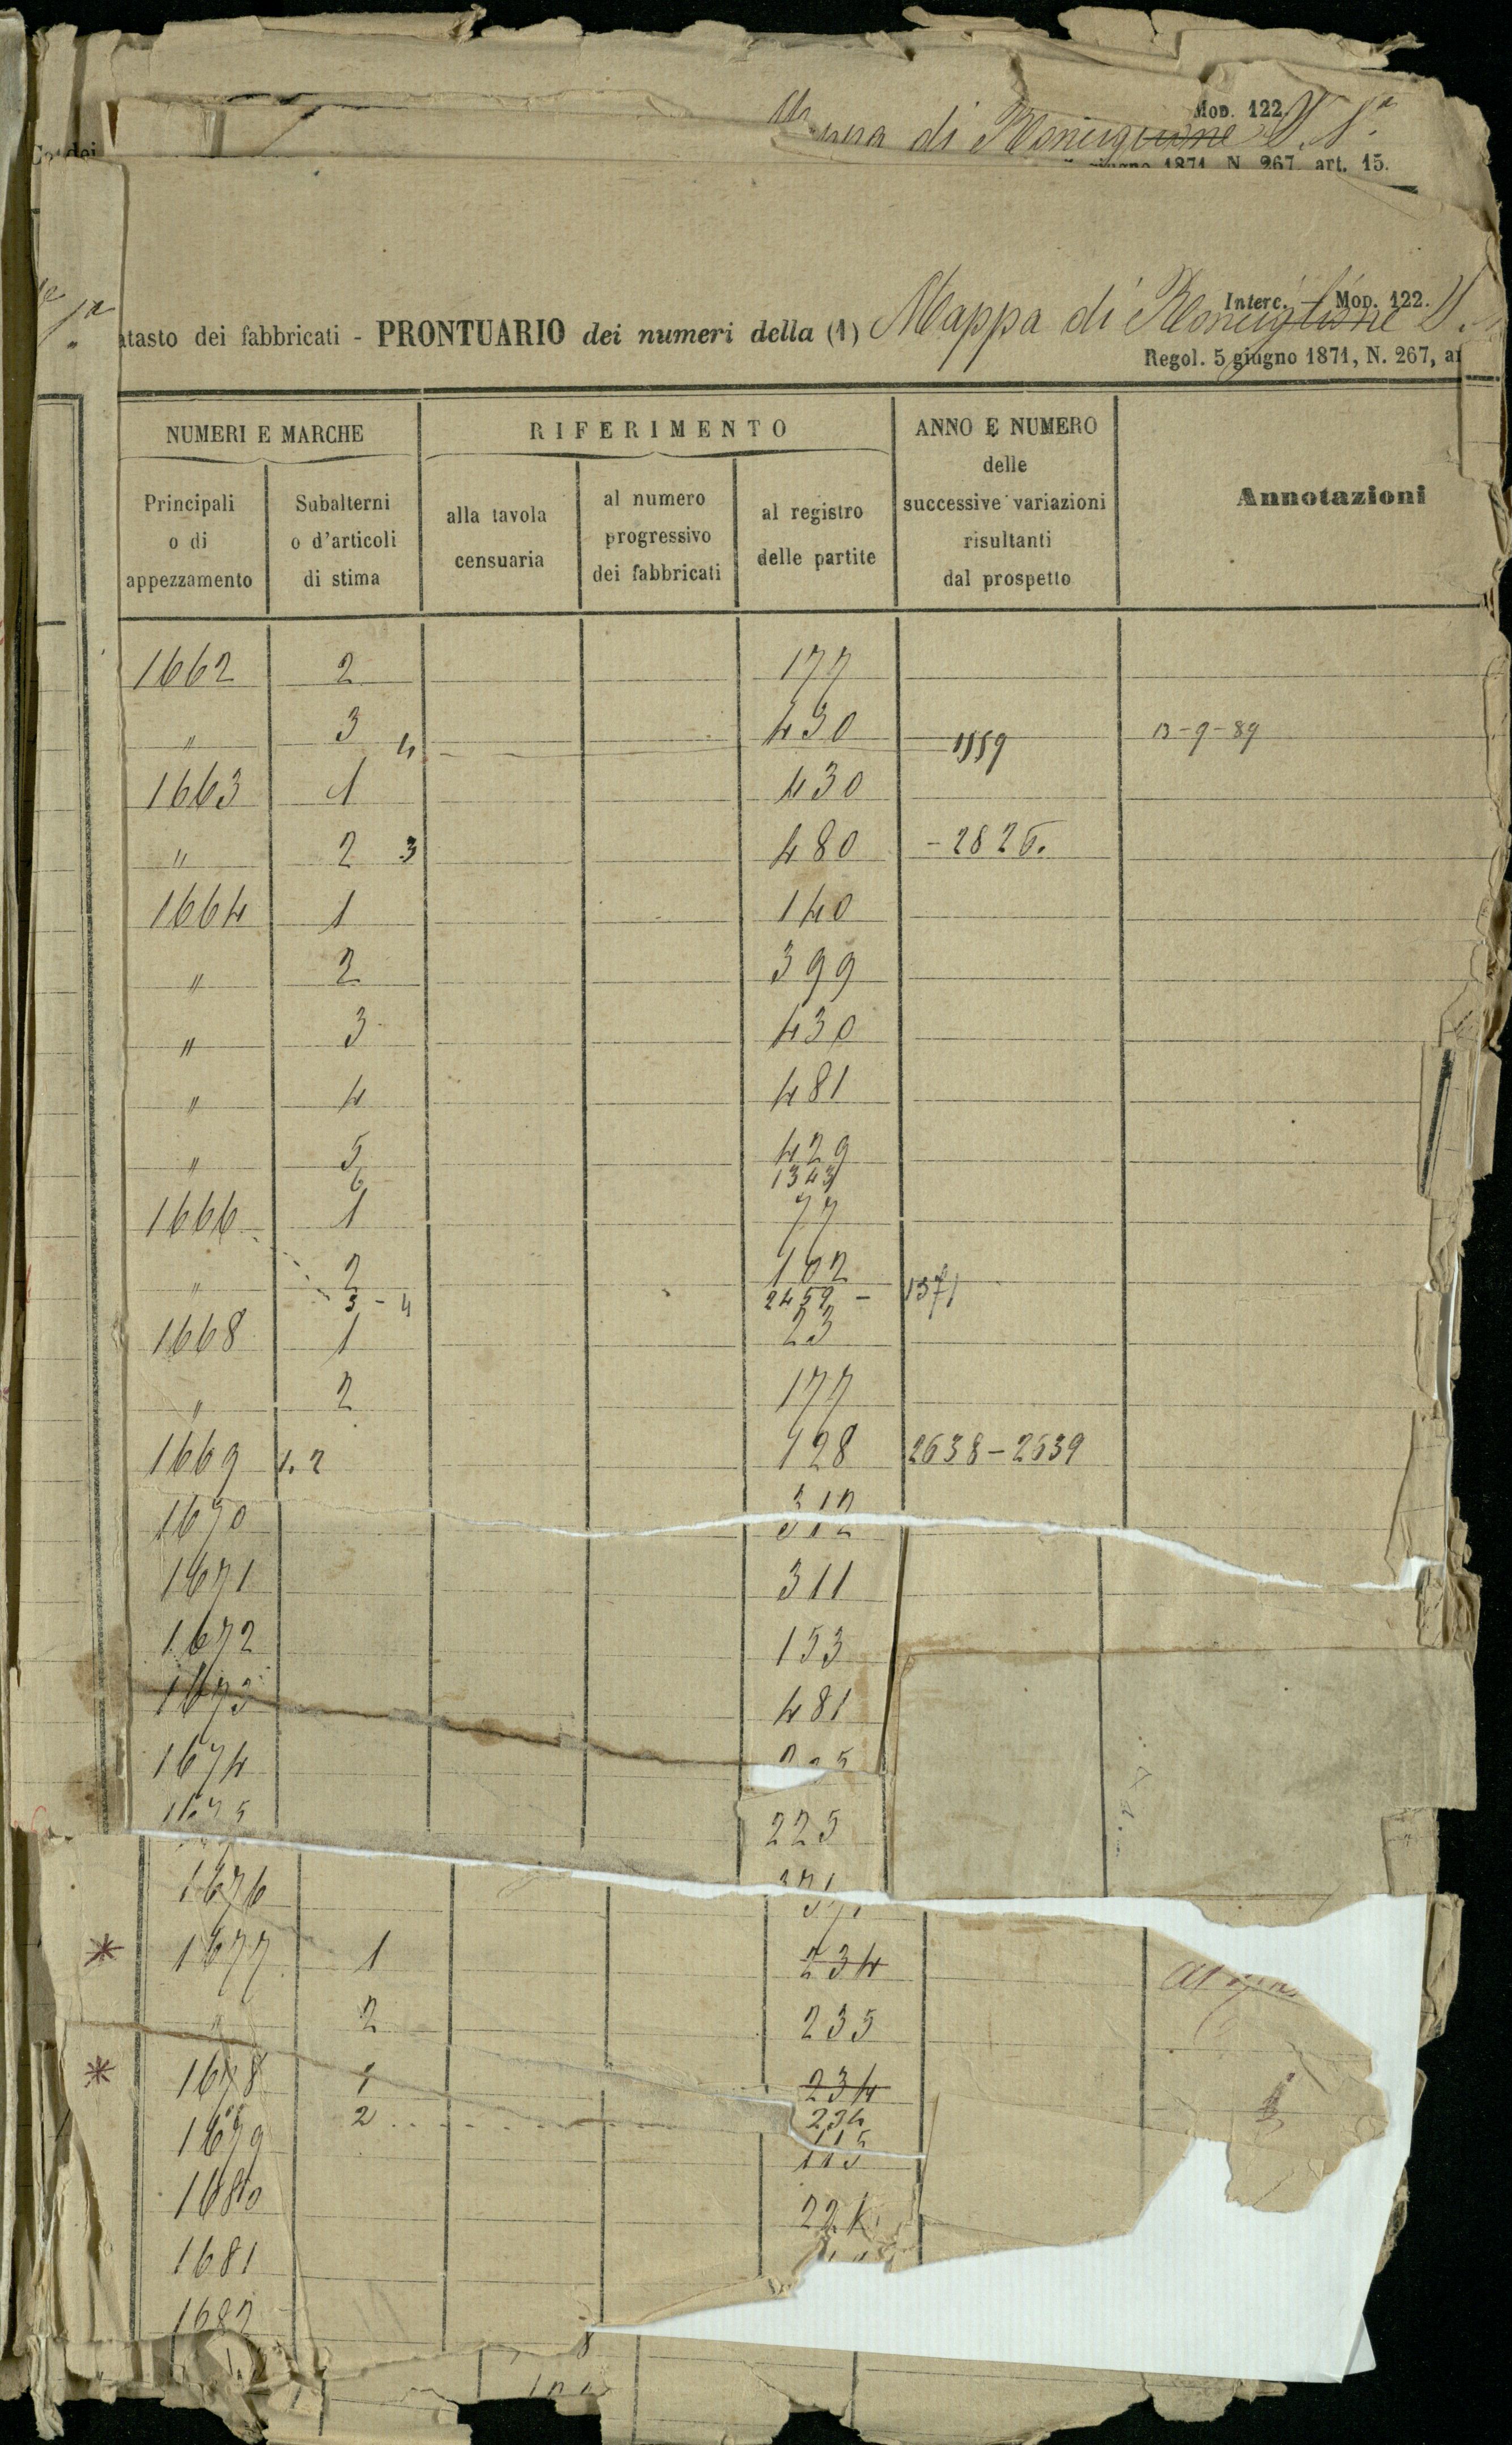 Mod. 122.
di Ronciglione S. 1ª
giugno 1871 N. 267, art. 15.
Interc. - Mod. 122.
atasto dei fabbricati - PRONTUARIO dei numeri della (1) Mappa di Ronciglione S.
Regol. 5 giugno 1871, N. 267, a
NUMERI E MARCHE
RIFERIMENTO
ANNO E NUMERO
delle
successive variazioni
risultanti
dal prospetto
Annotazioni
Principali
o di
appezzamento
Subalterni
o d'articoli
di stima
alla tavola
censuaria
al numero
progressivo
dei fabbricati
al registro
delle partite
1662 2 177
" 3 4 430 1559 13-9-89
1663 1 430
" 2 3 480 -2826.
1664 1 140
" 2 399
" 3 430
" 4 481
" 5 429
6 1343
1666 1 77
" 2 102
3-4 2459 - 1371
1668 1 23
" 2 177
1669 1. 2 128 2638-2639
1670 312
1671 311
1672 153
1673 481
1674
1675 225
1676 371
* 1677 1 234
" 2 235
* 1678 1 234
2 234
1679 115
1680 22
1681
1682